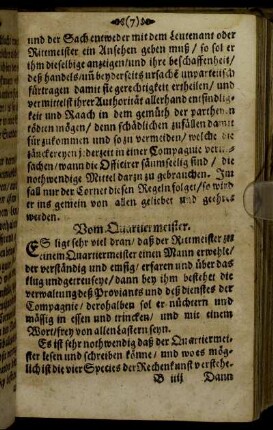 (7)
und der Sach entweder mit dem Leutenant oder
Rittmeister ein Ansehen geben muß / so sol er
ihm dieselbige anzeigen / und ihre beschaffenheit /
deß handels / uñ beyderseits ursachē unparteisch
fürtragen damit sie gerechtigkeit ertheilen / und
vermittelst ihrer Authoritât allerhand
keit und Raach in dem gemûth der parthe
tödten mögen / denn schådlichen zufållen damit
fürzukommen und so zu vermeiden / welche die
zånckereyen jederzeit in einer Compagnie
sachen / wann die Officirer såumselig sind / die
nothwendige Mittel darzu zu gebrauchen. Im
fall nur der Cornet diesen Regeln folget / so wird
er ins gemein von allen geliebet und geehret
werden.
Vom Quartiermeister.
ES ligt sehr viel dran / daß der Rittmeister zu
einem Quartiermeister einen Mann erwehle /
der verståndig und emsig / erfaren und über das
klug und getreu seye / dann bey ihm bestehet die
verwaltung deß Proviants und deß dienstes der
Compagnie / derohalben sol er nüchtern und
måssig in essen und trincken / und mit einem
Wort / frey von allen Lastern seyn.
Es ist sehr nothwendig daß der Quartiermei-
ster lesen und schreiben könne / und wo es mög-
lich ist die vier Species der Rechenkunst verstehe.
B iiij Dann